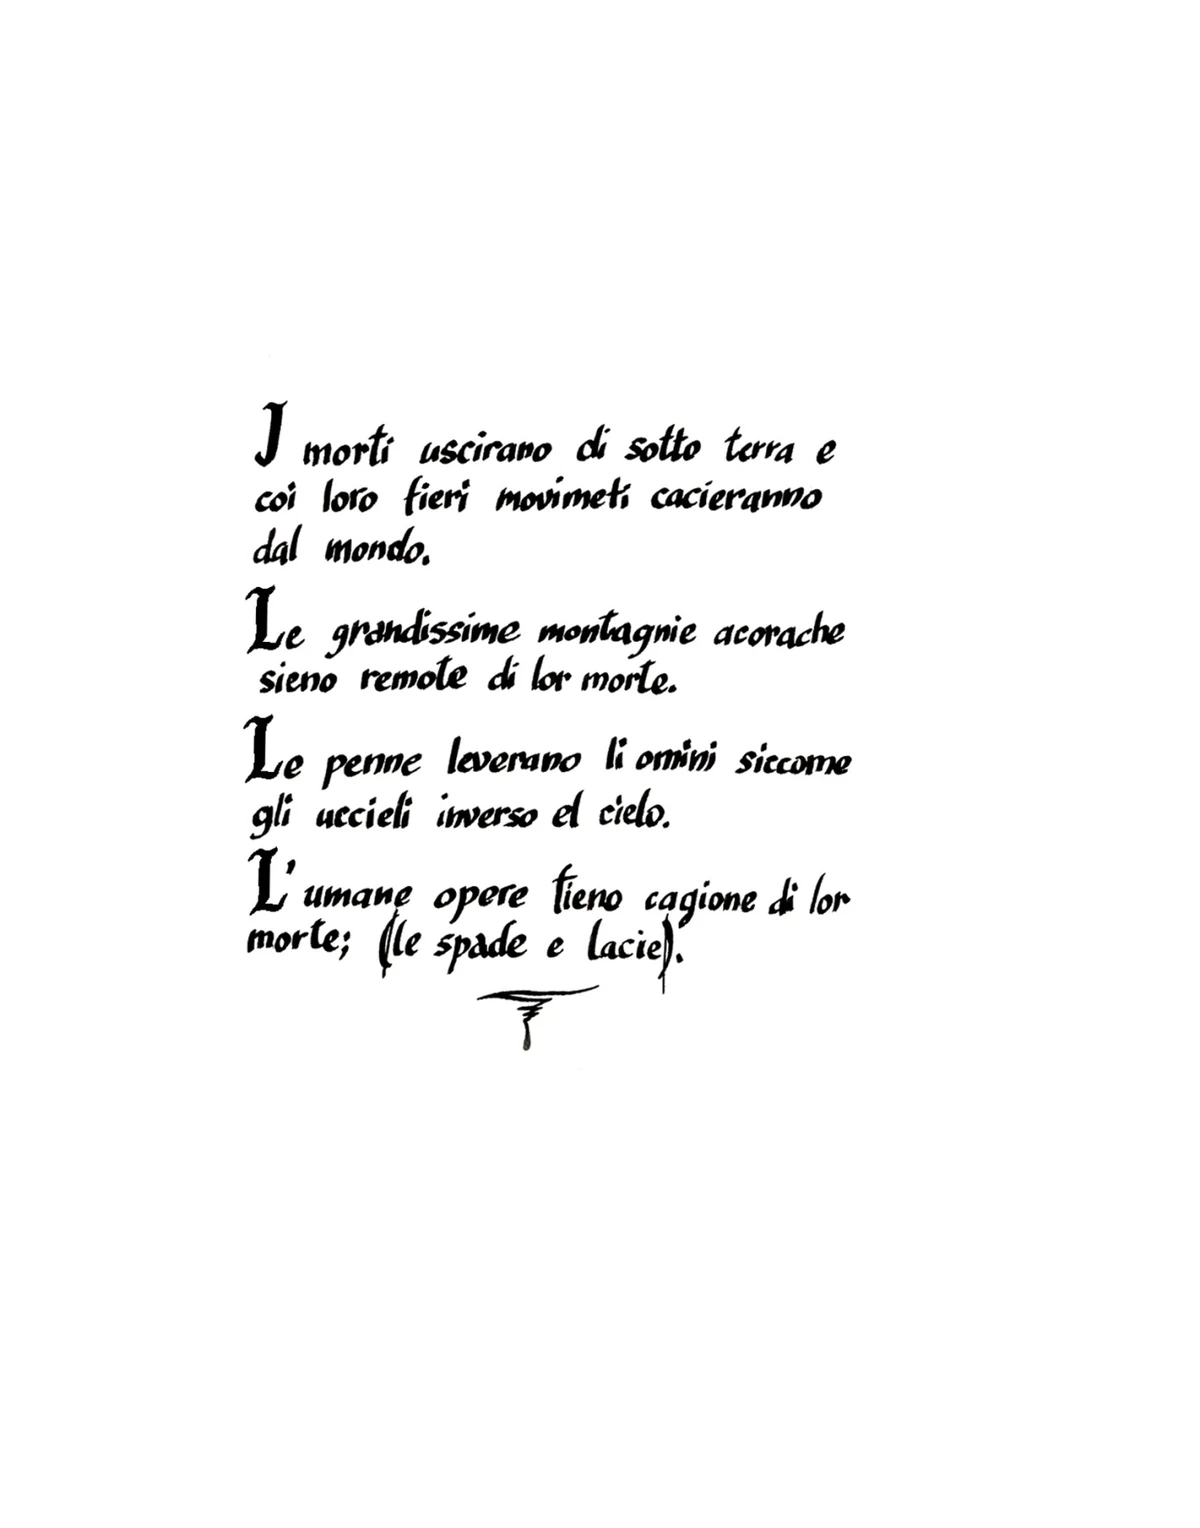 I morti uscirano di sotto terra e
coi loro fieri movimeti cacieranno
dal mondo.
Le grandissime montagnie acorache
sieno remote di lor morte.
Le penne leverano li omini siccome
gli uccieli inverso el cielo.
L'umane opere fieno cagione di lor
morte; (le spade e lacie).